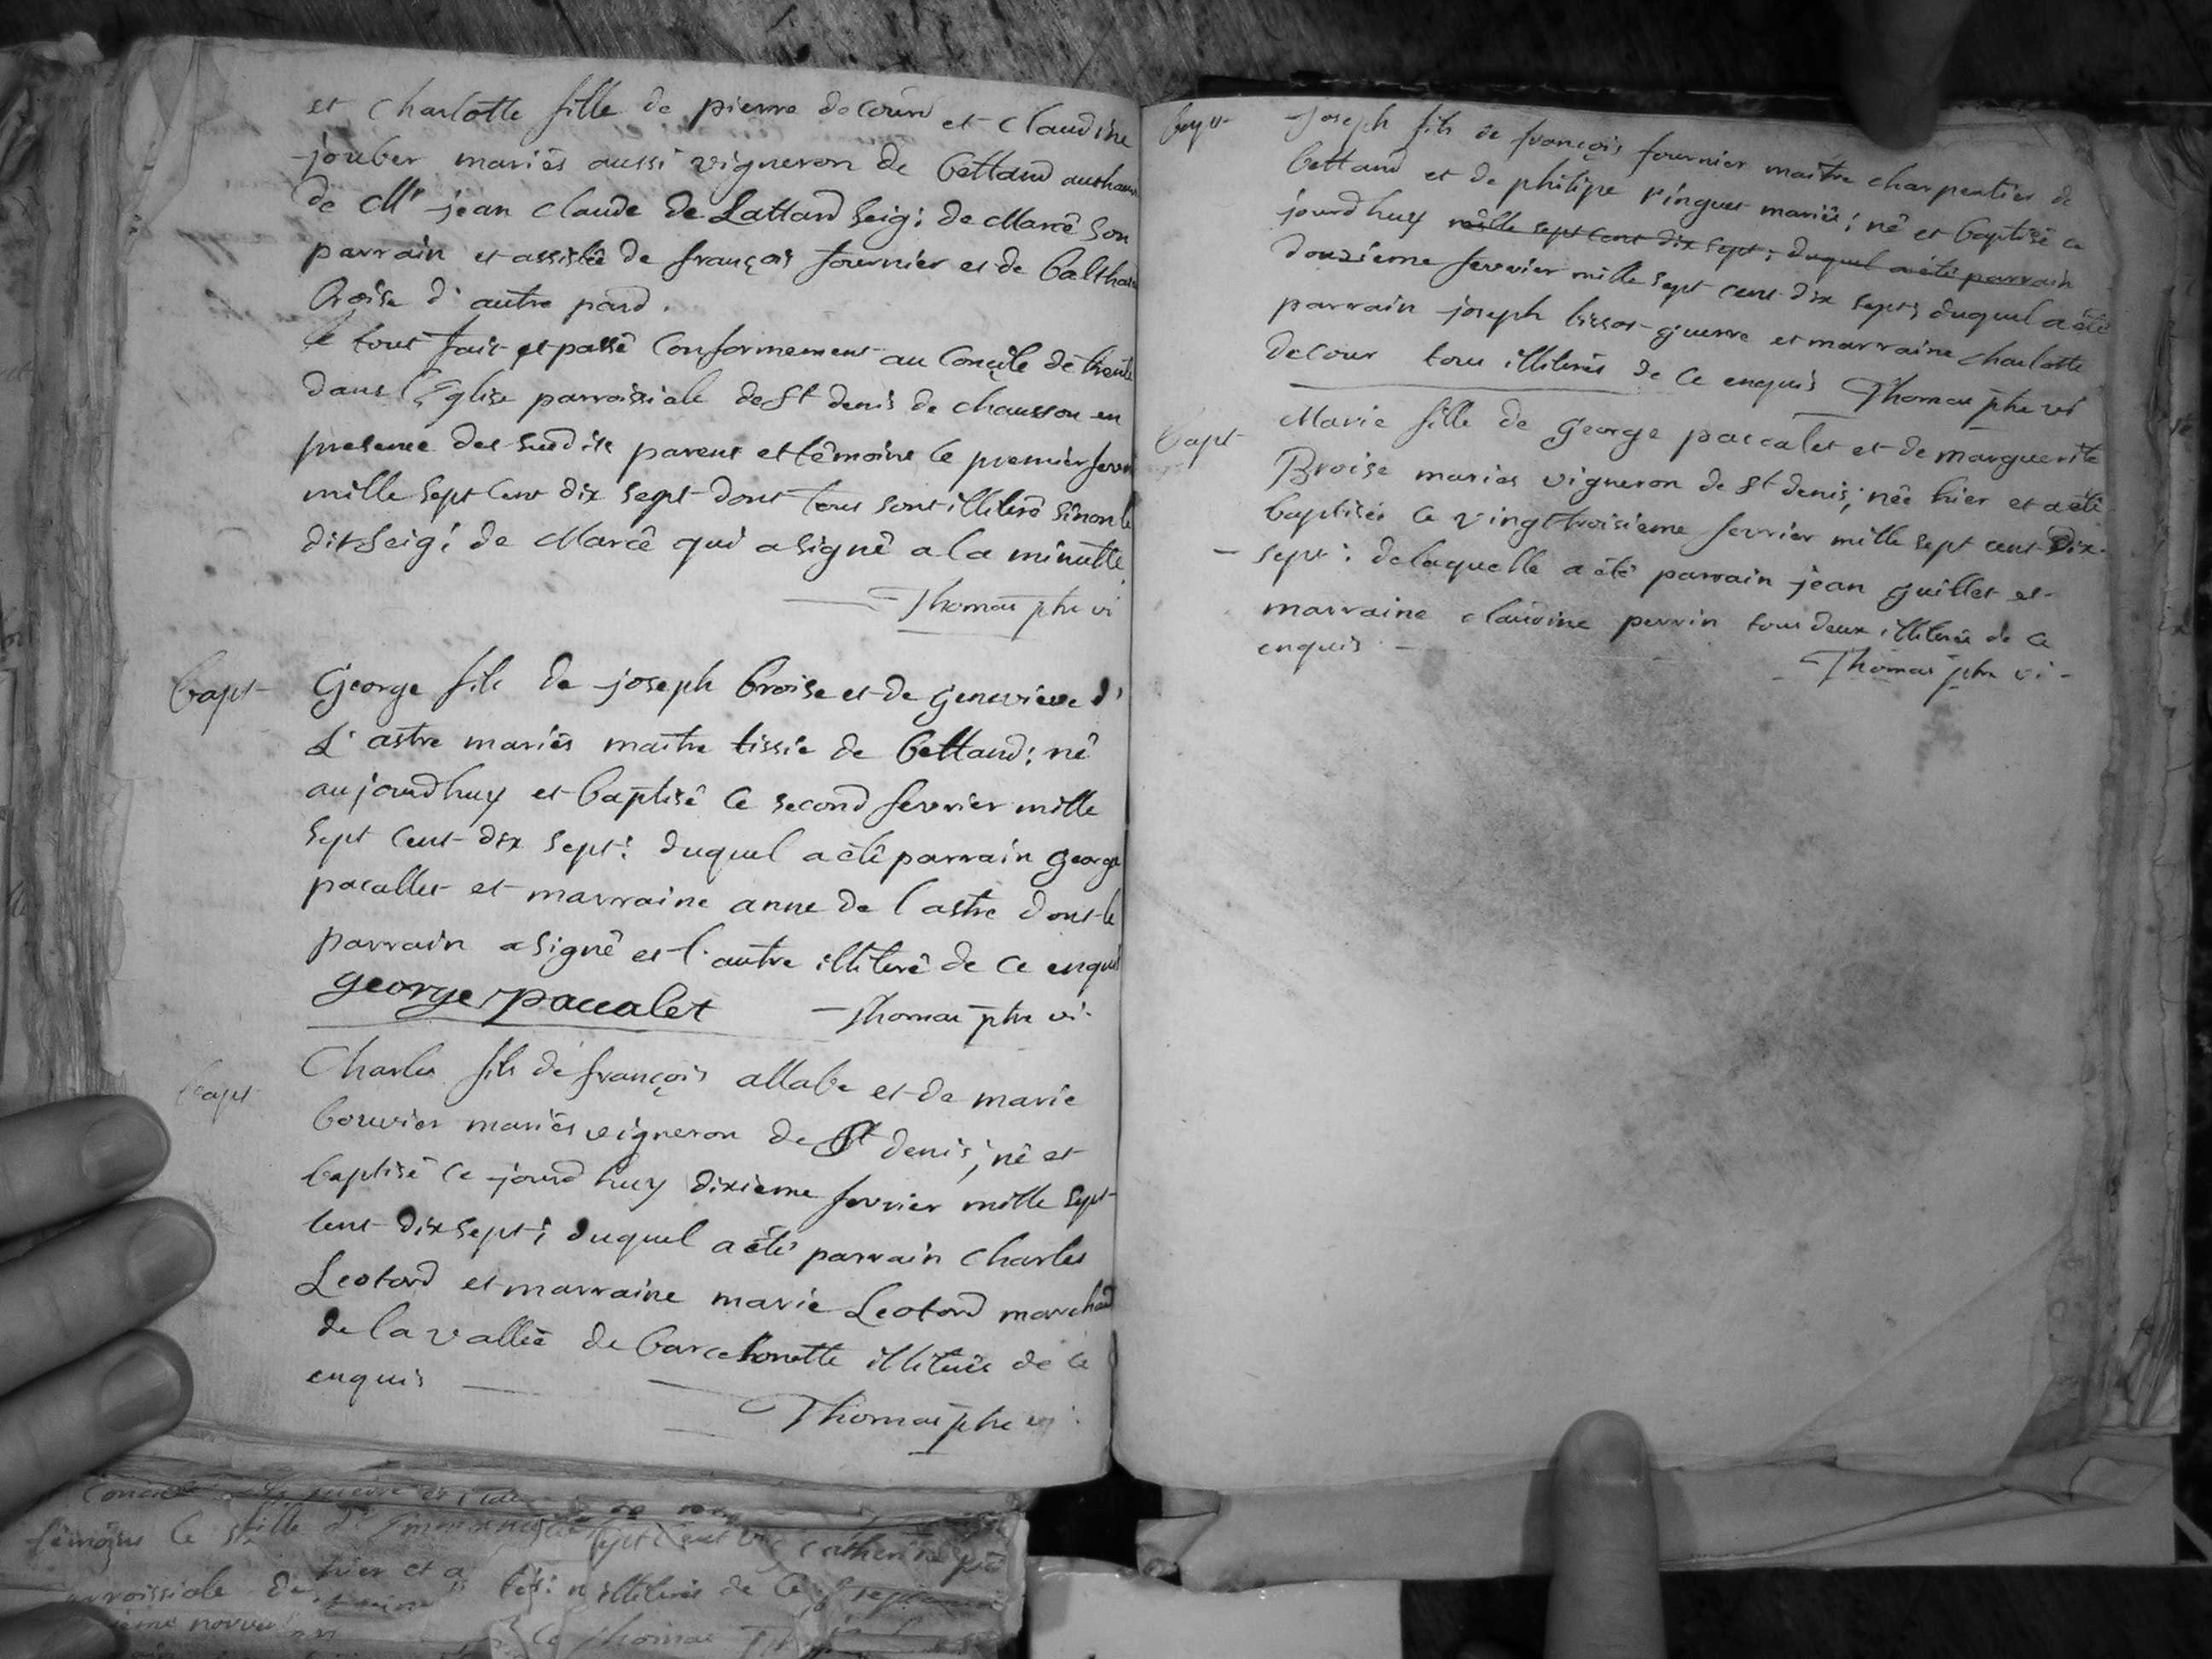 et Charlotte fille de pierre decour et Claudine
jouber mariés aussi vigneron de bettand
de Mr jean Claude de Lattard Seig: de Marcê Son
parrain et assistée de françois fournier et de
broise d'autre pard.
le tout fait et passê Conformement au Conçile de
dans l'Eglise parroissiale de St denis de Chausson en
presence des susdits parens et têmoins le premier
mille Sept Cent dix Sept dont tous sont illiterê sinon le
dit Seig: de Marcê qui a Signê a la minutte
Thomas ptre vi
bapt
George fils de joseph broise et de genevieve d'
L'astre mariés maitre tissie de bettand; nê
aujourdhuy et baptisê Ce second fevrier mille
Sept Cent dix Sept: duquel a êtê parrain george
pacallet et marraine anne de l'astre dont le
parrain a Signê et l'autre illiterê de Ce enquis
george paccalet
Thomas ptre vi.
bapt
Charles fils de françois allabe et de marie
bouvier mariés vigneron de St denis; nê et
baptisê Ce jourdhuy dixieme fevrier mille Sept
Cent dix Sept; duquel a êtê parrain Charles
Leotard et marraine marie Leotard marchand
de la vallée de barcelonette illiterés de Ce
enquis
Thomas ptre vi
bapt
Joseph fils de françois fournier maitre charpentier de
bettand et de philipe pinguet mariés; nê et baptisê Ce
jourdhuy mille sept cent dix sept; duquel a êté parrain
douzième fevrier mille Sept Cent dix Sept; duquel a êtê
parrain joseph bissot guerre et marraine charlotte
decour tous illiterés de Ce enquis Thomas ptre vi
bapt
Marie fille de George paccalet et de marguerite
Broise mariés vigneron de St denis; nêe hier et a êtê
baptisée Ce vingttroisieme fevrier mille Sept Cent Dix-
Sept: de laquelle a êtê parrain jean guillet et
marraine Claudine perrin tous deux illiterés de Ce
enquis
Thomas ptre vi
hier et a
illiterés de Ce
Thomas